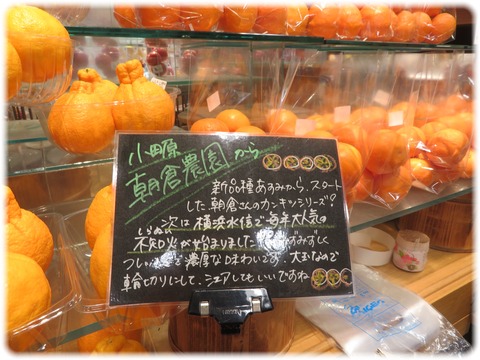 小田原
朝倉農園から
新品種あすみから、スタート
した、朝倉さんのカンキツシリーズ?
次は横浜水信で毎年大人気の
しらぬい
不知火が始まりました みずみずしく
濃厚な味わいです。大玉なので
輪切りにして、シェアしてもいいですね